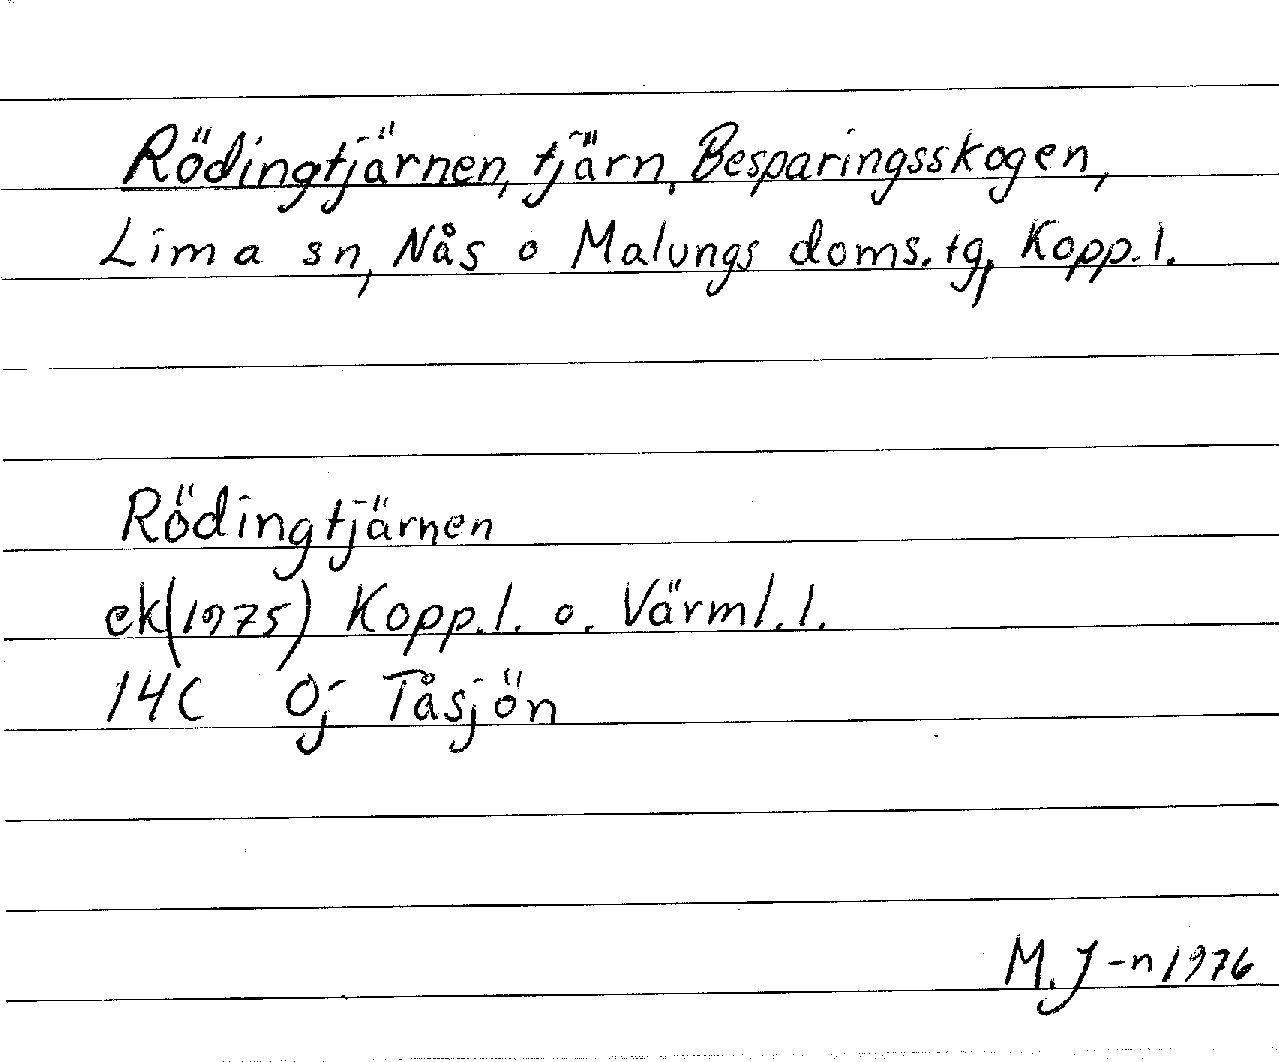 Rödingtjärnen, tjärn, Besparingsskogen,
Lima sn, Nås o Malungs doms. tg, Kopp. l.
Rödingtjärnen
ek(1975) Kopp. l. o. Värml. l.
14C 0j Tåsjön
M. J-n 1976